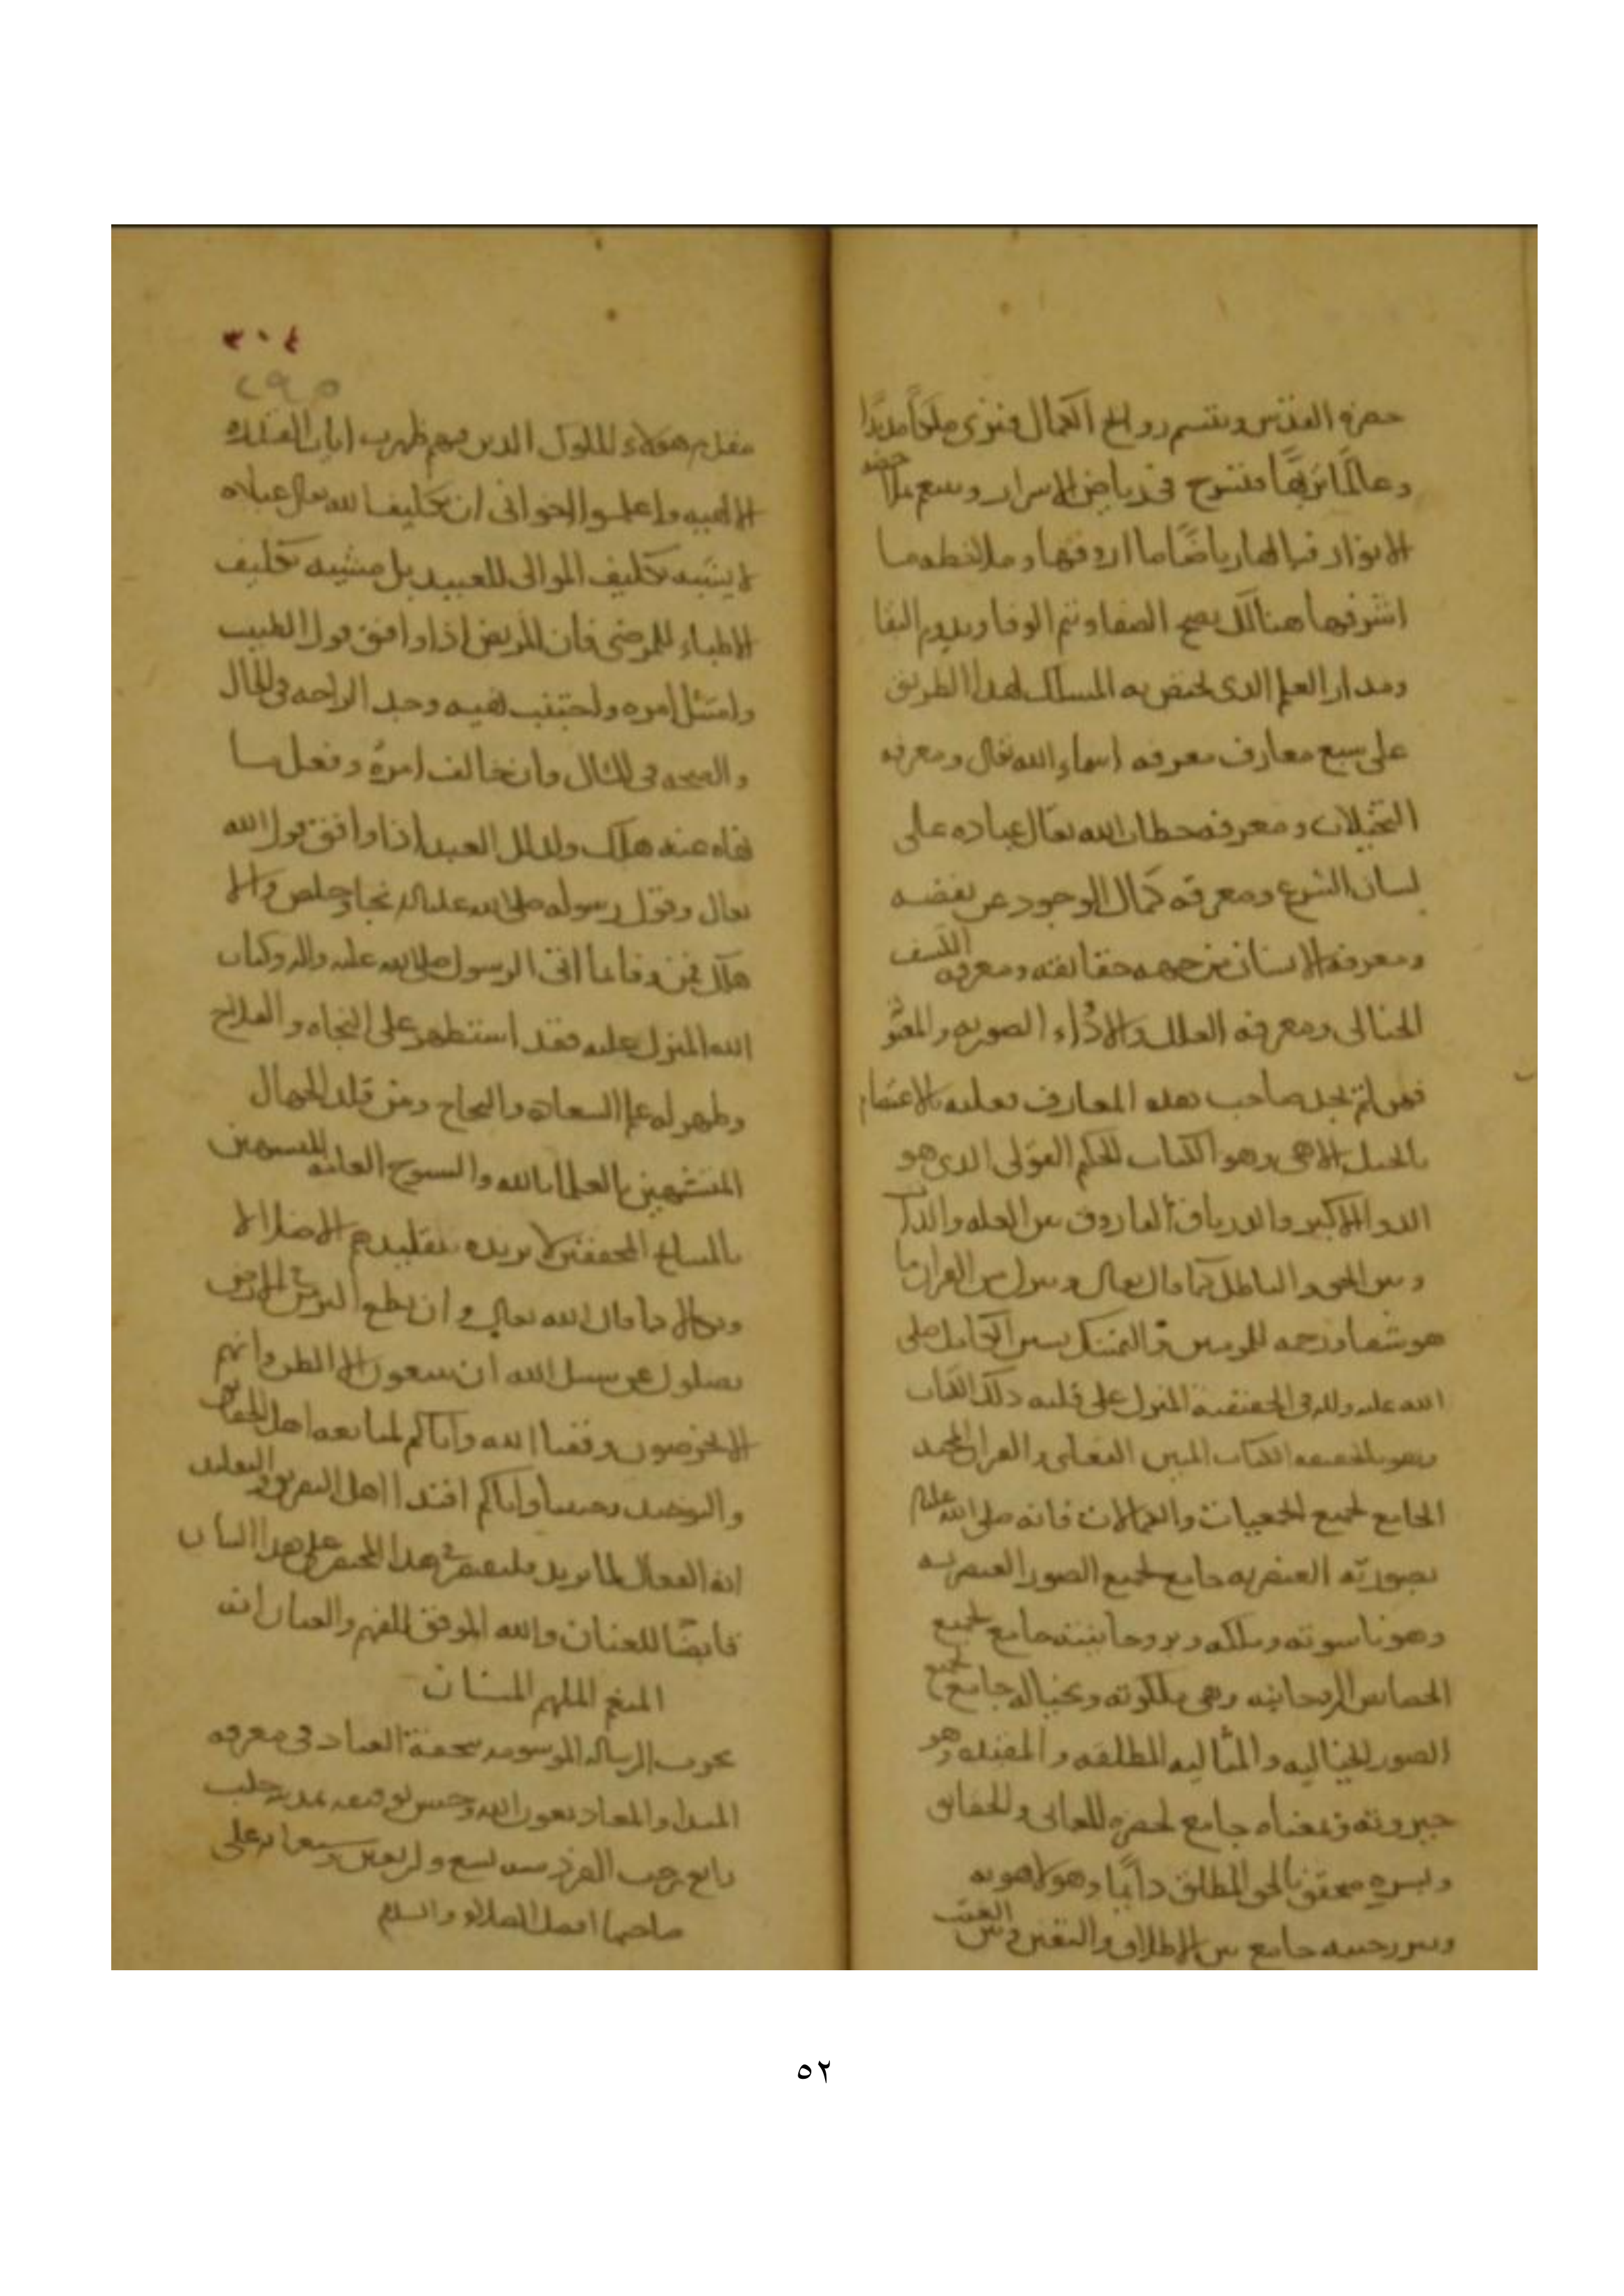 حضرة القدس ويتنسم روايح الكمال فنرى ملكًا مديدًا
وعالمًا نزيهًا فتسرح في رياض الاسرار وسع ملا حضه
الانوار فيا لها رياضًا ما اروقها وملاحظه ما
اشرفها هنالك يصح الصفا ويتم الوفا ويدوم البقا
ومدار العلم الذي يختص به المسالك لهذا الطريق
على سبع معارف معرفه اسماء الله تعالى ومعرفه
التجليات ومعرفه خطاب الله تعالى عباده على
لسان الشرع ومعرفة كمال الوجود عن نقضه
ومعرفة الانسان من جهه حقائقه ومعرفه الكشف
الخيالى ومعرفه العلل والادواء الصوريه والمعنو
فمن لم يجد صاحب هذه المعارف فعليه بالاعتصام
بالحبل الالهى وهو الكتاب المحكم القولى الذى هو
الدوا الاكبر والدرياق الفاروق بين العله والذات
وبين الحق والباطل كما قال تعالى وننزل من القران ما
هو شفا ورحمه للمومنين والتمسك بسير الكامل صلى
الله عليه واله في الحقيقية المنزل على قلبه ذلك الكتاب
وهو بالحقيقه الكتاب المبين الفعلى والقران المجيد
الجامع لجميع الجمعيات والكمالات فانه صلى الله عليه
بصورته العنصريه جامع لجميع الصور العنصريه
وهو ناسوته وملكه وبروحانيته جامع لجميع
الخصائص الروحانيه وهى ملكوته وبخياله جامع لجميع
الصور الخياليه والمثاليه المطلقه والمقيده وهو
جبروته وبمعناه جامع لحضرة المعانى والحقايق
وبسره متحقق بالحق المطلق دايمًا وهو لاهوته
وبسر رحمته جامع بين الاطلاق والتقيد وبين الغيب
٣٠٤
٢٩٥
هولاء الملوك الذين بهم ظهرت ايات القدره
الالهيه واعلموا اخوانى ان تكليف الله تعالى عباده
لا يشبه تكليف الموالى للعبيد بل يشبه تكليف
الاطباء للمرضى فان المريض اذا وافق قول الطبيب
وامتثل امره واجتنب نهيه وجد الراحه في الحال
والصحه في المآل وان خالف امره وفعل ما
نهاه عنه هلك وكذلك العبد اذا وافق قول الله
تعالى وقول رسوله صلى الله عليه واله نجا وخلص والا
هلك فمن وفا بما اتى الرسول صلى الله عليه واله وكتاب
الله المنزل عليه فقد استظهر على النجاه والفلاح
وظهر له علم السعادة والنجاح ومن قلد الجهال
المتشبهين بالعلما بالله والشيوخ العامه المتشبهين
بالمشايخ المحققين لا يزيده تقليدهم الا ضلالا
ووبالا كما قال الله تعالى وان تطع اكثر من في الارض
يضلوك عن سبيل الله ان يتبعون الا الظن وان هم
الا يخرصون وفقنا الله واياكم لمتابعه اهل الحقايق
والتوحيد وجنبنا واياكم اقتدا اهل التفريق والتقليد
انه الفعال لما يريد فليقتصر في هذا المختصر على هذا البيان
قابضًا للعنان والله الموفق للفهم والعيان انه
المنعم الملهم المنان
تحرير الرساله الموسومه بتحفة العباد في معرفه
المبدا والمعاد بعون الله وحسن توفيقه بمدينه حلب
رابع رجب الفرد سنه تسع واربعين وسبعمايه على
صاحبها افضل الصلاه والسلام
٥٢